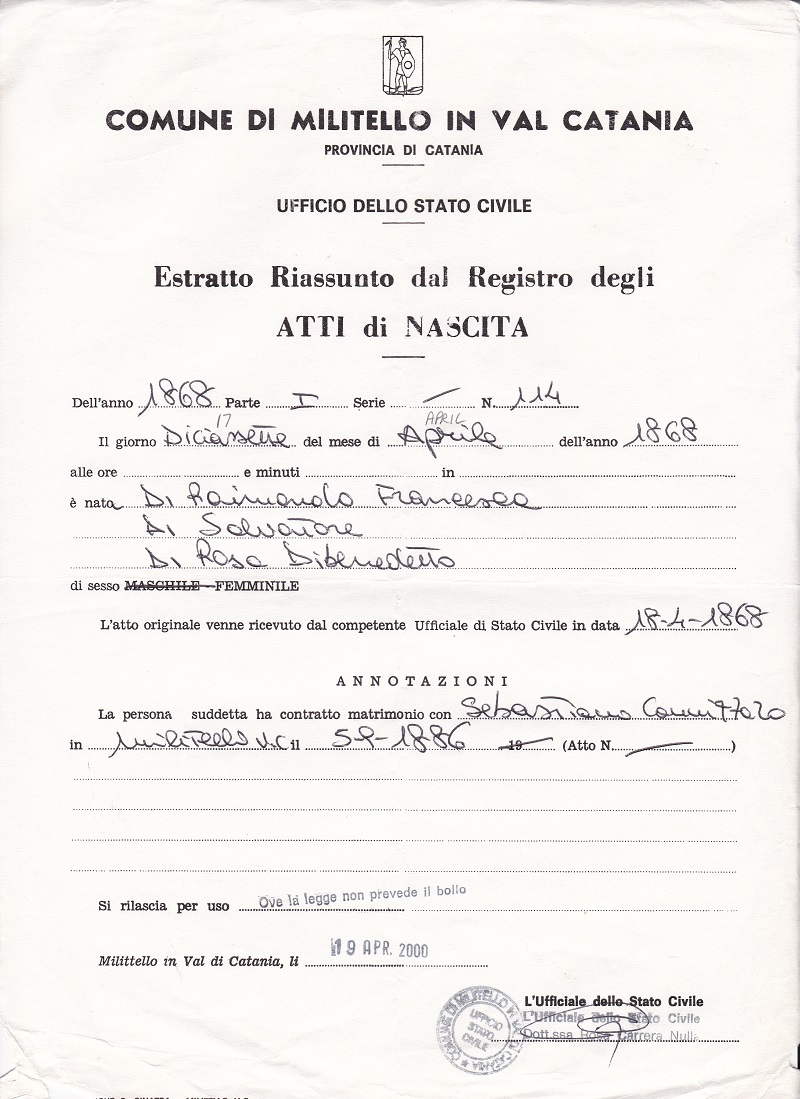 COMUNE DI MILITELLO IN VAL CATANIA
PROVINCIA DI CATANIA
UFFICIO DELLO STATO CIVILE
Estratto Riassunto dal Registro degli
ATTI di NASCITA
Dell'anno 1868 Parte I Serie — N. 114
17 APRIL
Il giorno Diciassette del mese di Aprile dell'anno 1868
alle ore e minuti in
è nata Di Raimondo Francesca
Di Salvatore
Di Rosa Dibenedetto
di sesso MASCHILE - FEMMINILE
L'atto originale venne ricevuto dal competente Ufficiale di Stato Civile in data 18-4-1868
ANNOTAZIONI
La persona suddetta ha contratto matrimonio con Sebastiano
in Militello V.C il 1886 19 (Atto N. — )
Si rilascia per uso Ove la legge non prevede il bollo
Milittello in Val di Catania, li 19 APR. 2000
L'Ufficiale dello Stato Civile
L'Ufficiale dello Stato Civile
Dott.ssa Rosa Carrera Nulla
COMUNE DI MILITELLO IN VAL DI CATANIA
UFFICIO
STATO
CIVILE